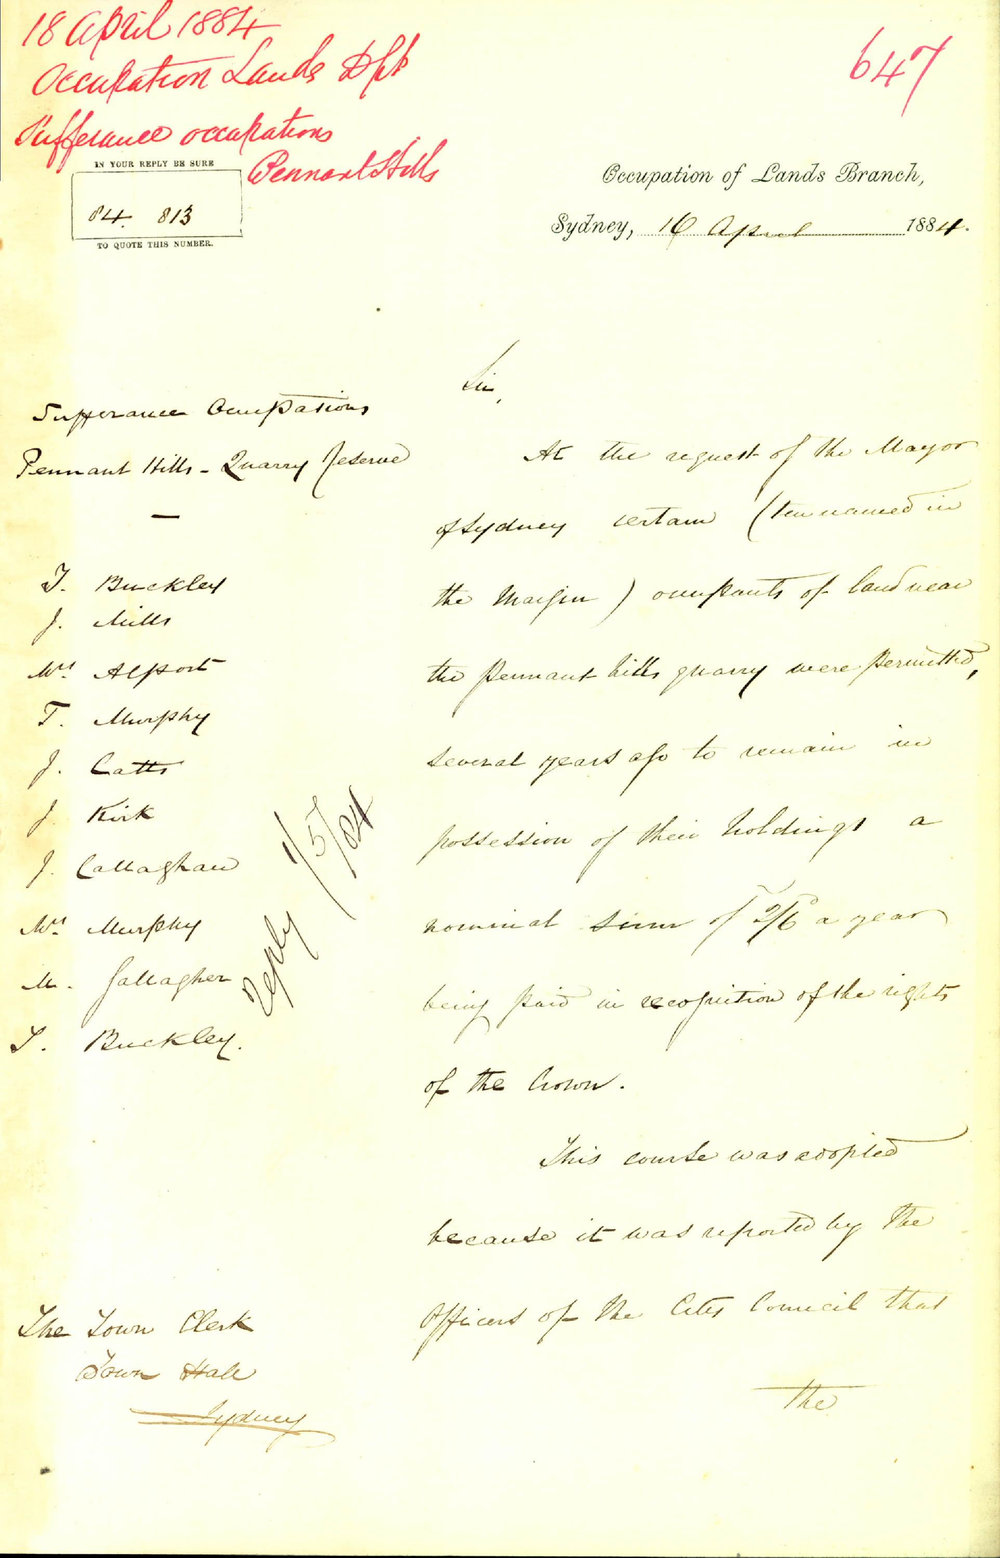 18 April 1884
647
Occupation Lands Dpt
Sufferance occupations
Pennant Hills
IN YOUR REPLY BE SURE
84. 813
TO QUOTE THIS NUMBER.
Occupation of Lands Branch,
Sydney, 16 April 1884.
Sir,
Sufferance Occupations
Pennant Hills - Quarry Reserve
T. Buckley
J. Mills
Wm Alport
T. Murphy
J. Catts
J. Kirk
J. Callaghan
Wm Murphy
M. Gallagher
T. Buckley.
Reply 1/5/84
At the request of the Mayor
of Sydney certain (ten named in
the Margin) occupants of land near
the Pennant hills quarry were permitted,
several years ago to remain in
possession of their holdings a
nominal sum of 2/6 a year
being paid in recognition of the rights
of the Crown.
This course was adopted
because it was reported by the
Officers of the City Council that
the
The Town Clerk
Town Hall
Sydney